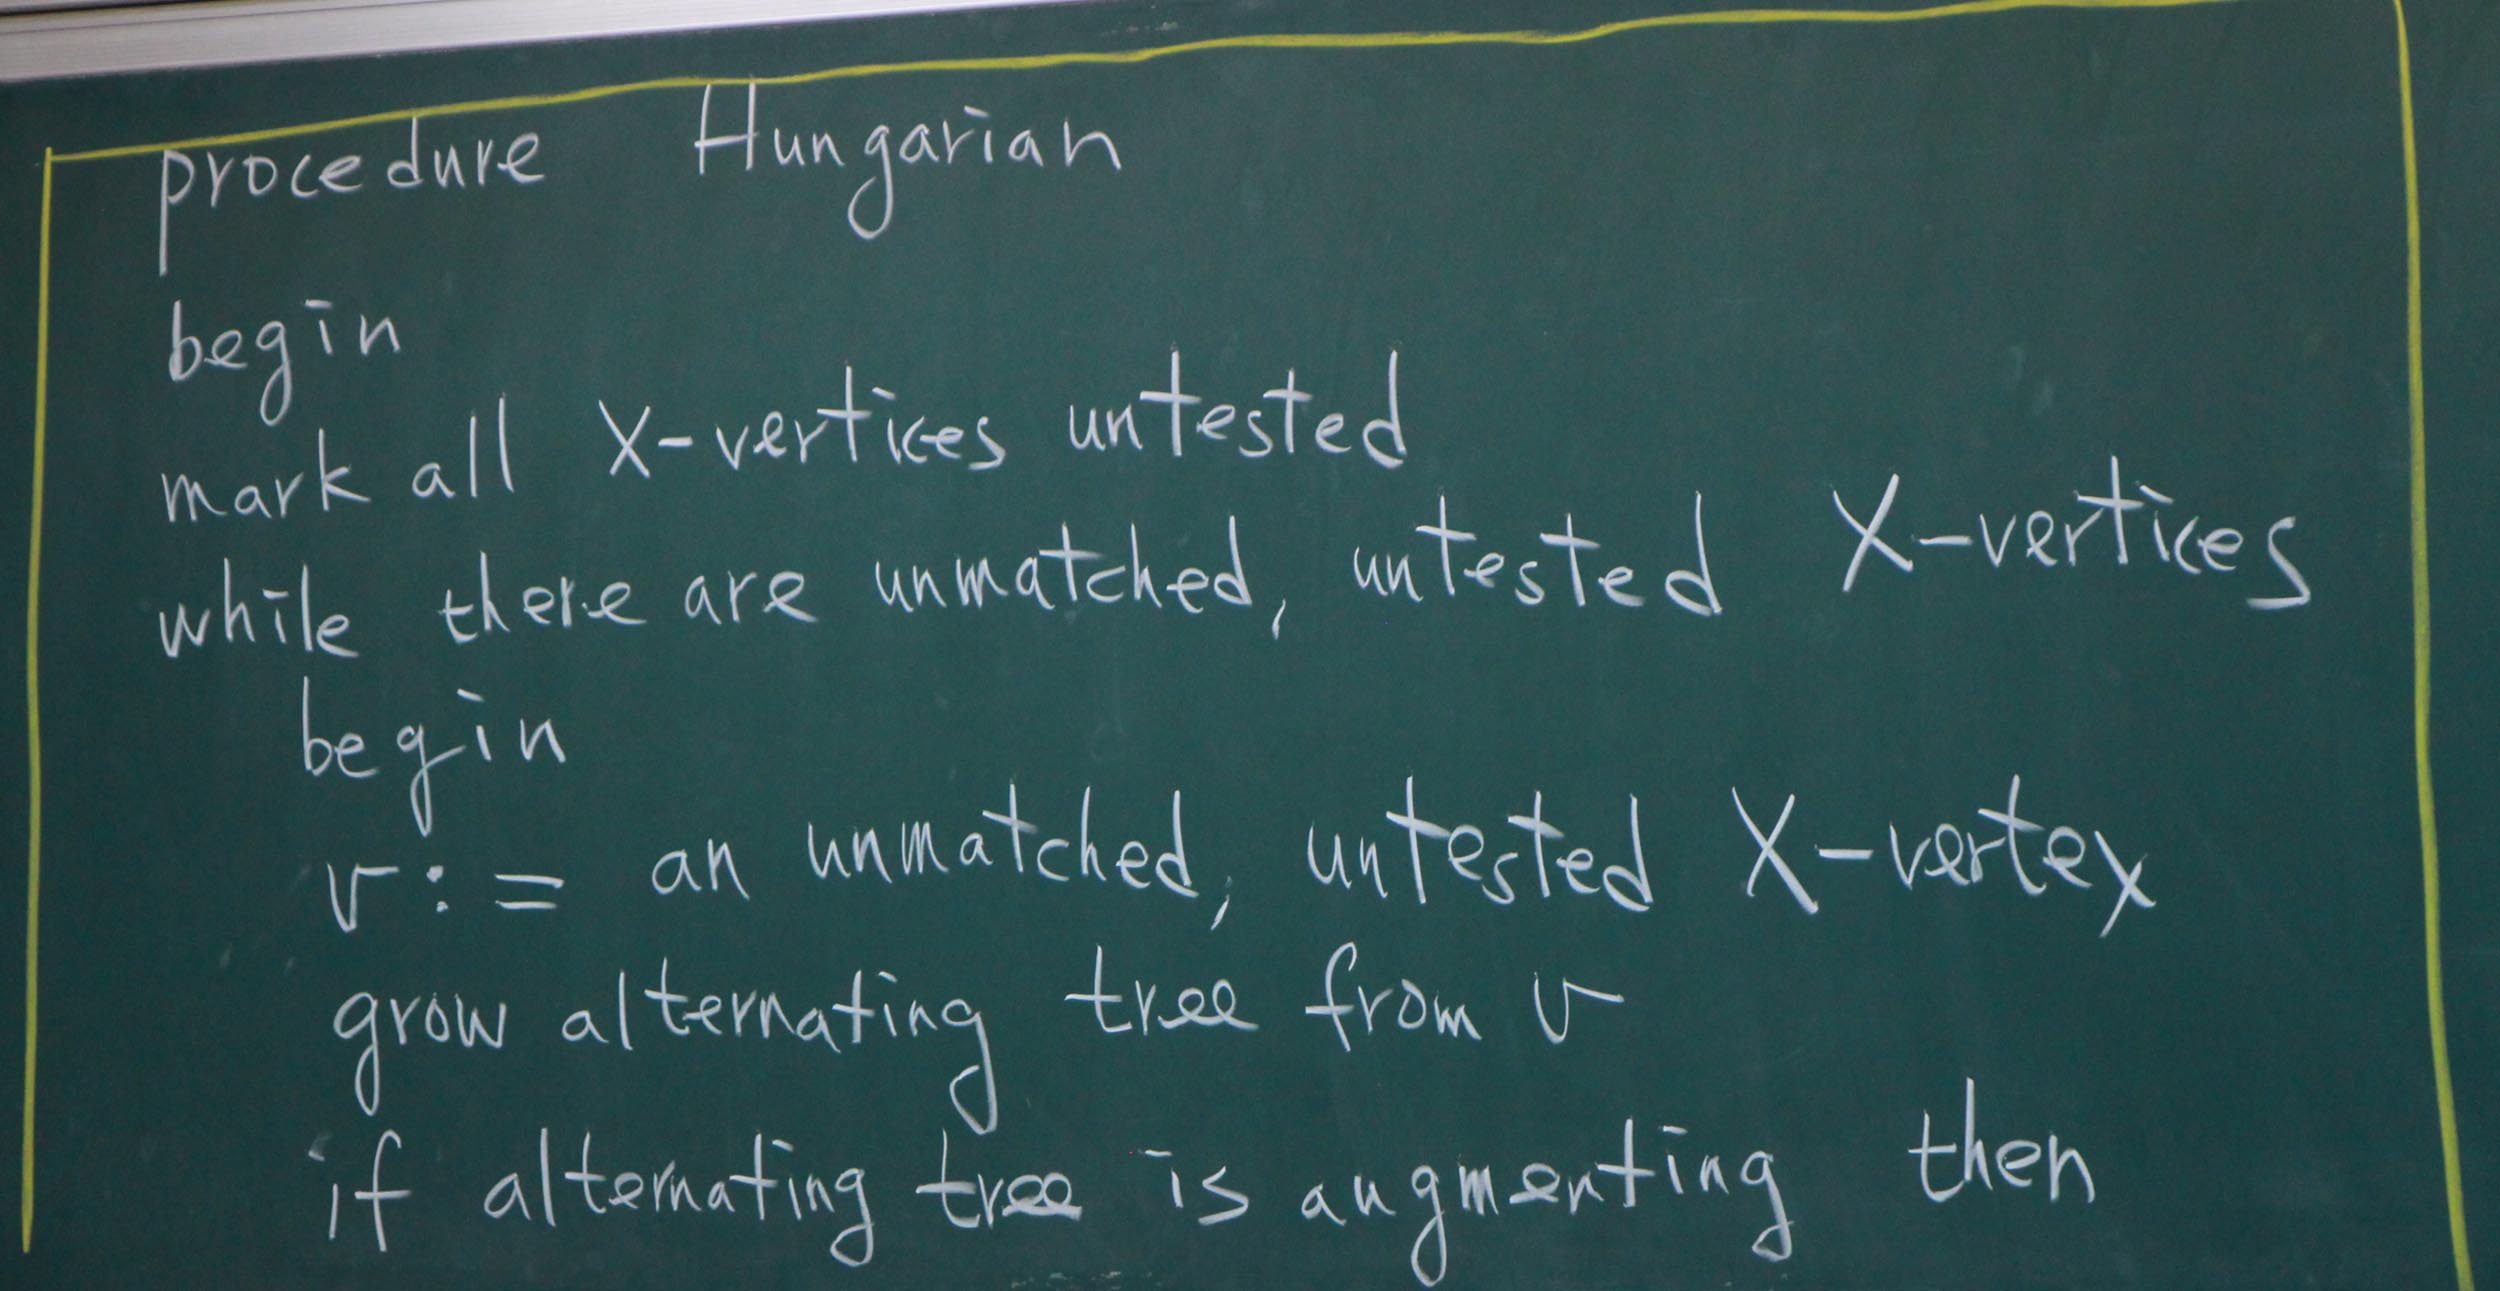 procedure Hungarian
begin
mark all X-vertices untested
while there are unmatched, untested X-vertices
begin
v := an unmatched, untested X-vertex
grow alternating tree from v
if alternating tree is augmenting then